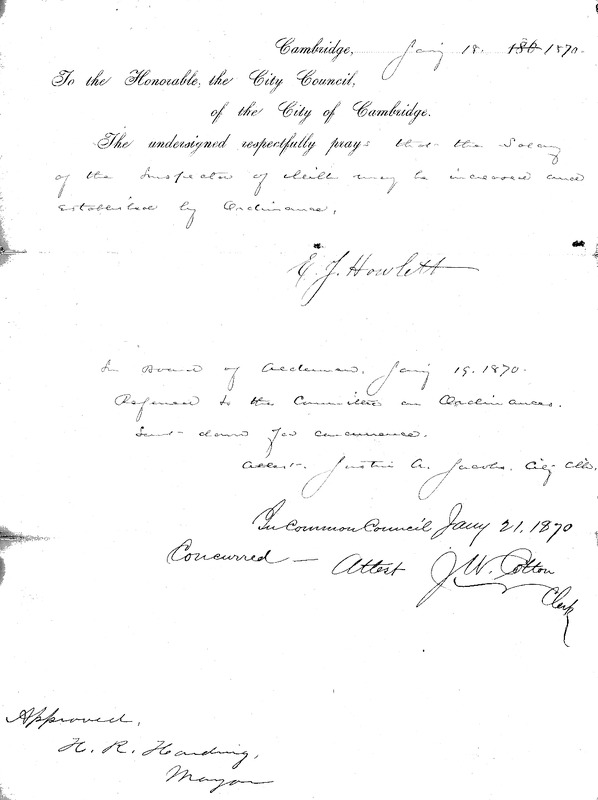 Cambridge, Jany 18. 186 1870.
To the Honorable, the City Council,
of the City of Cambridge.
The undersigned respectfully prays that the Salary
of the Inspector of Milk may be increased and
established by Ordinance.
E. J. Howlett
In Board of Aldermen. Jany 19. 1870.
Referred to the Committee on Ordinances.
Sent down for concurrence.
Attest. Justin A. Jacobs. City Clk.
In Common Council Jany 21. 1870
Concurred — Attest J. W. Cotton
Clerk
Approved,
H. R. Harding,
Mayor